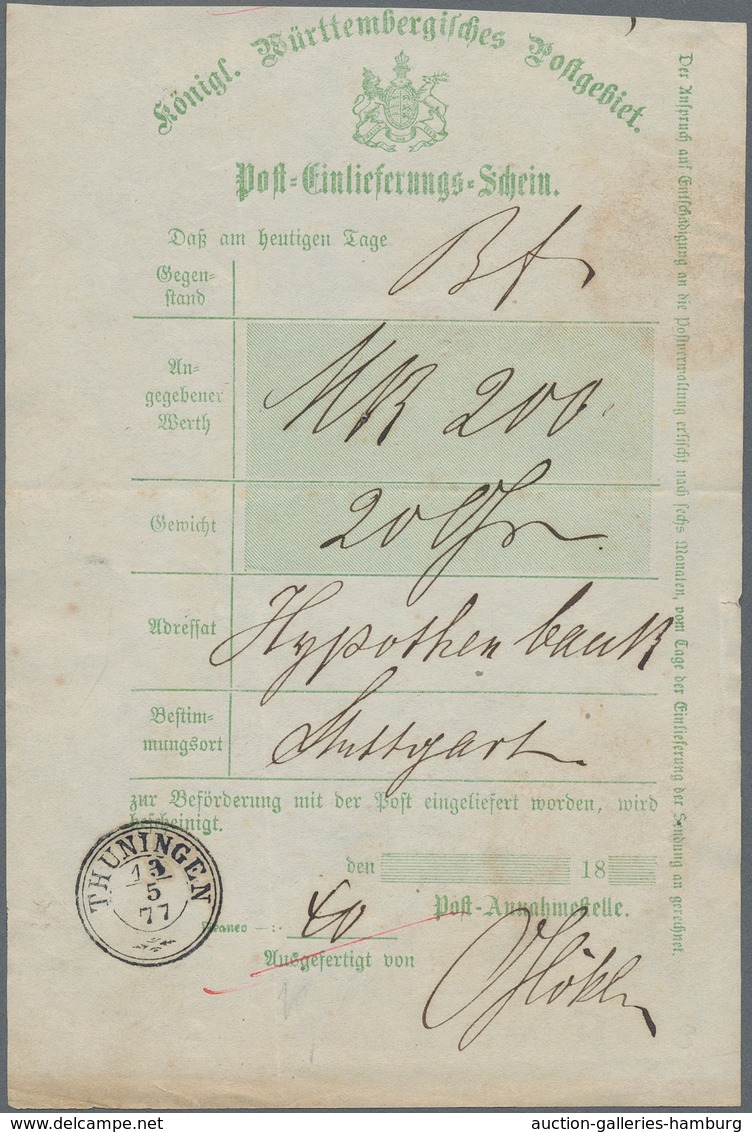 Königl. Württembergisches Postgebiet.
Post=Einlieferungs=Schein.
Daß am heutigen Tage
Gegen=
stand
Bf
An=
gegebener
Werth
Mk 200.
Gewicht
20 Gr
Adressat
Hypothekenbank
Bestim=
mungsort
Stuttgart.
zur Beförderung mit der Post eingeliefert worden, wird
bescheinigt.
den 18
THUNINGEN
13
5
77
Post=Annahmestelle.
Franco —:- 40
Ausgefertigt von
Der Anspruch auf Entschädigung an die Postverwaltung erlischt nach sechs Monaten, vom Tage der Einlieferung der Sendung an gerechnet.
auction-galleries-hamburg